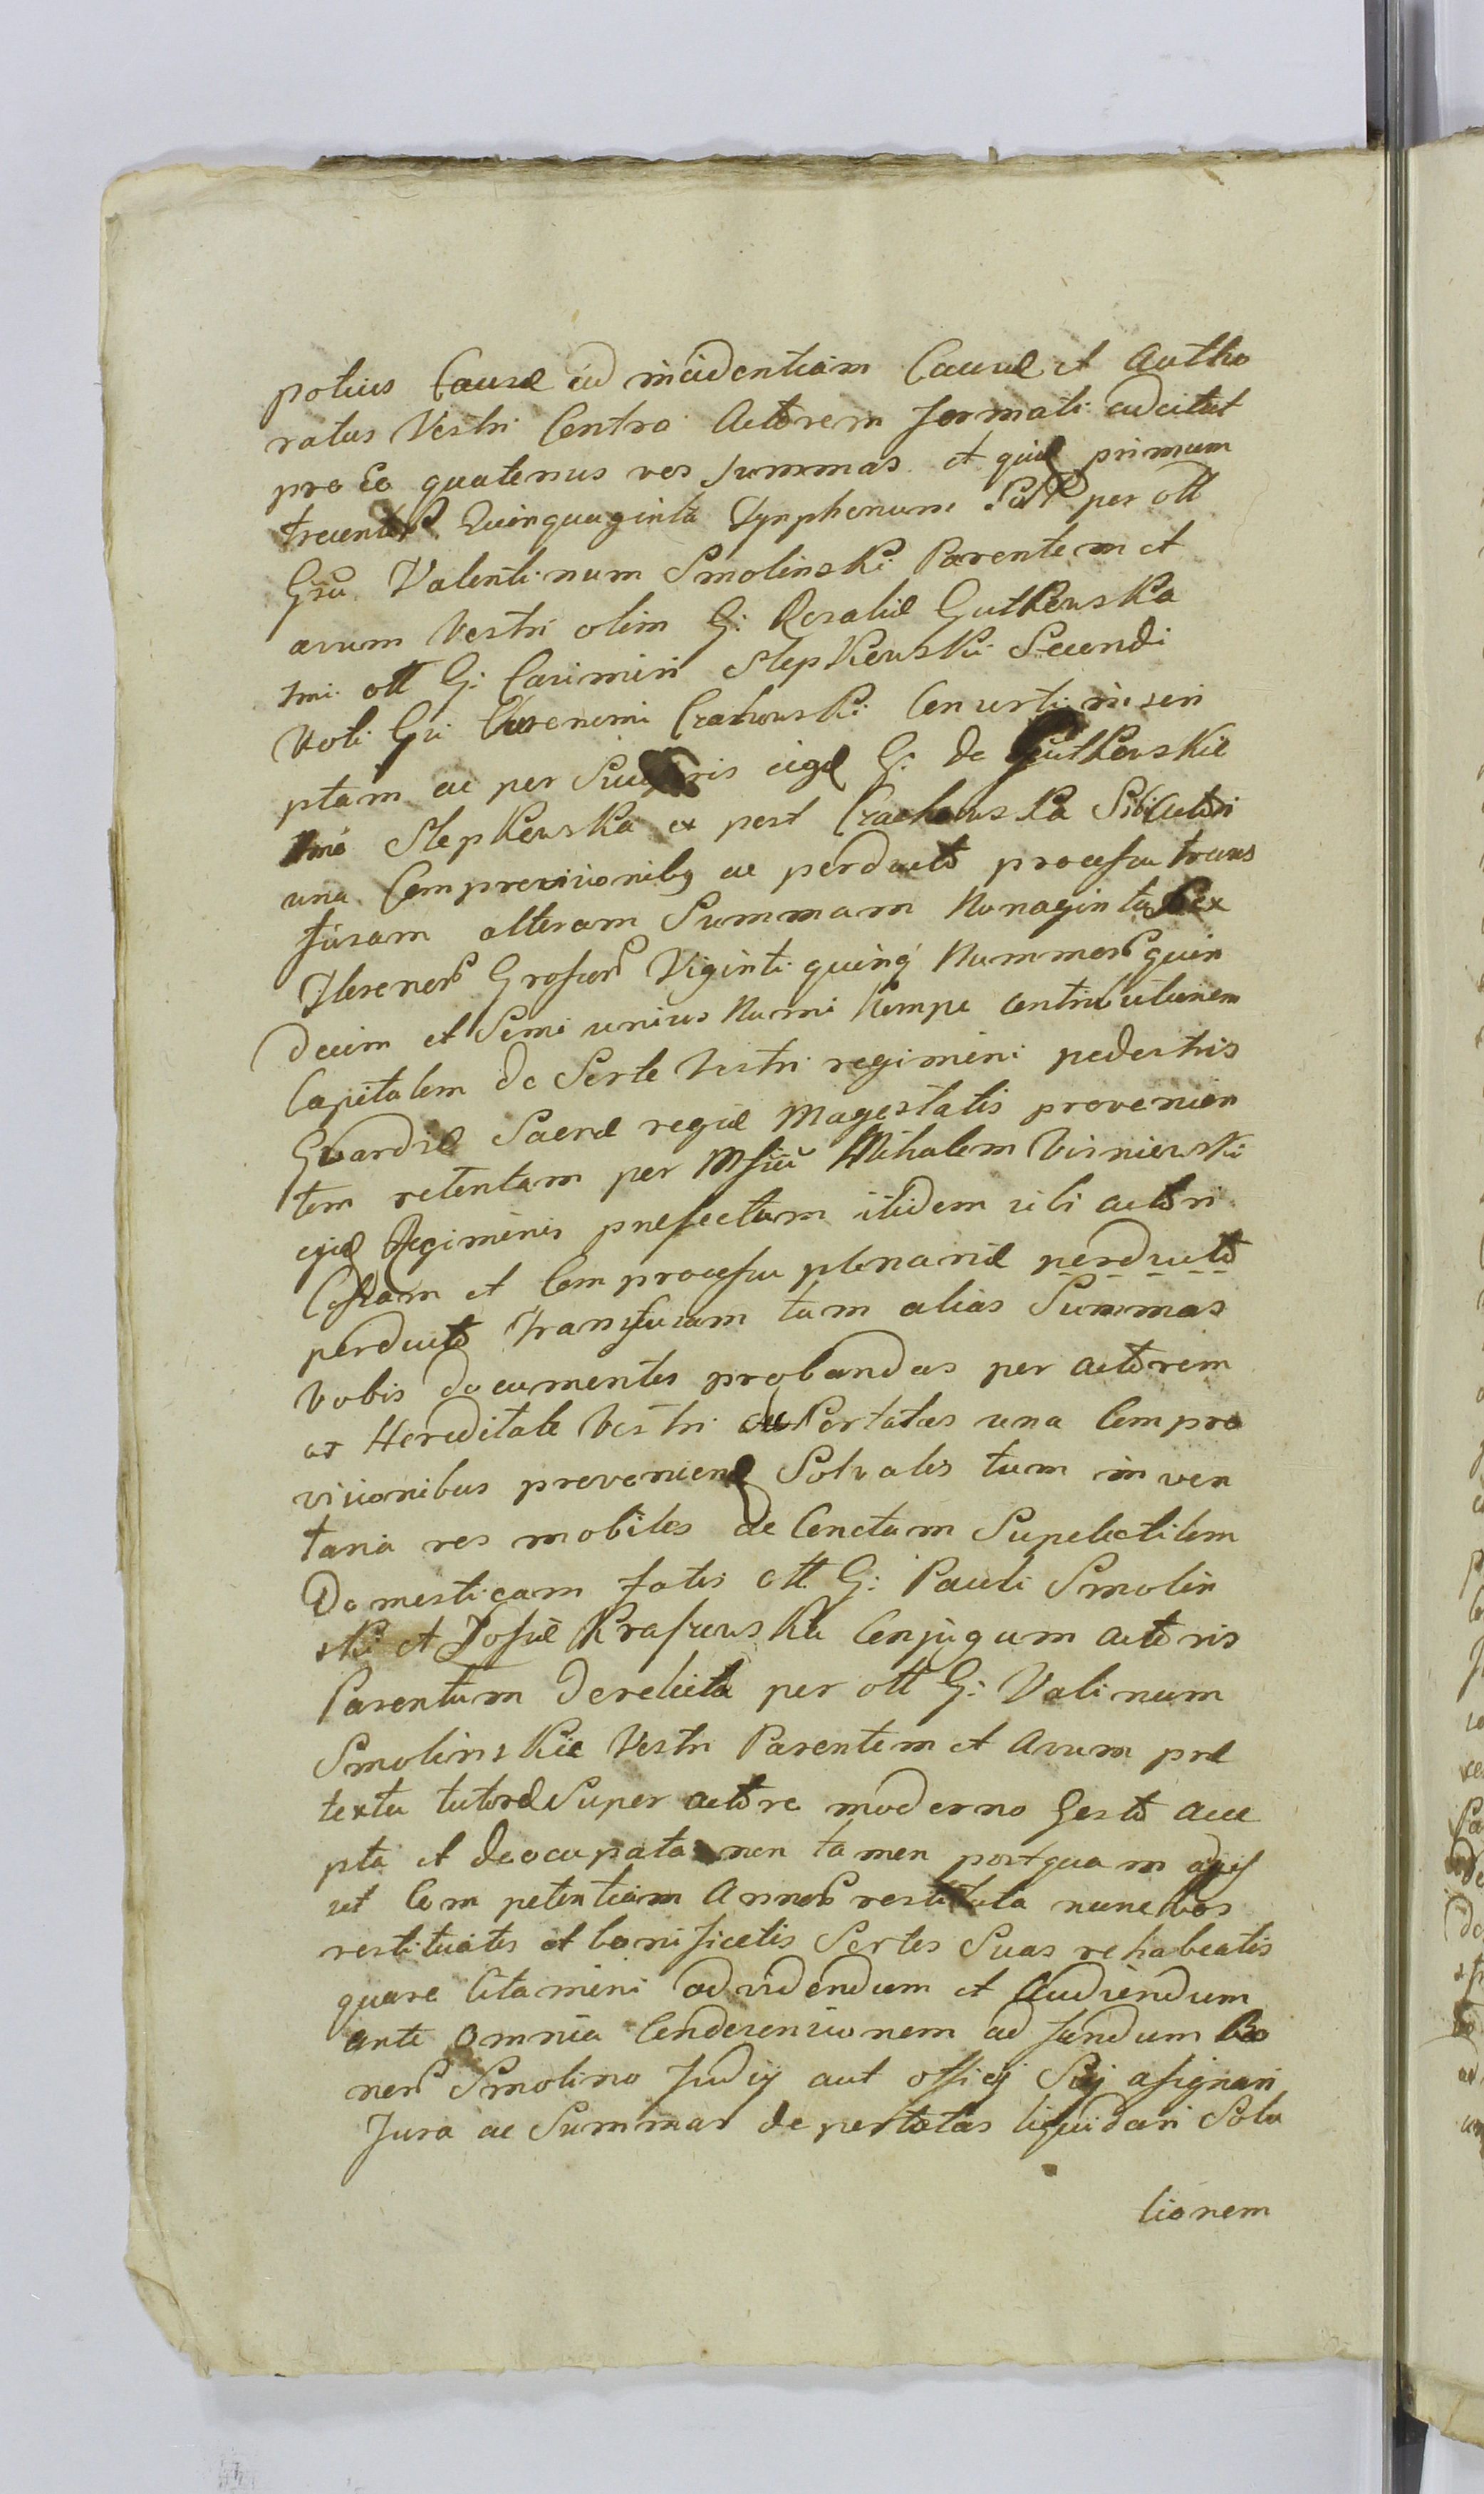 potius Causæ ad incidentiam Causæ et Autho
ratus Vestri Contra Actorem formati adcitat
pro Eo quatenus vos summas et quid primum
trecentor Quinquaginta Tynphonum per ott
Gsu Valentinum Smolinski Parentem et
avum Vestri olim G: Rosaliæ Gutkowska
1mi ott G: Casimiri Stepkowski Secundi
Voti Gsi Czachowski Consorti inscri
ptam ac per G: de Gutkowskie
1mo Stepkowska ex post Czachowska Sibi Actori
una Com provisionibg ac perducto processu trans
fusam alteram Summam Nonaginta Sex
Florenor Grossor Viginti quinq Nummor quin
decim et Semi unius Numi Nempe contributionem
Capitalem de Sorte Vestri regimini pedestris
Gvardiæ Sacræ regiæ Magestatis provenien
tem retentam per Msicu Mihalem Visniewski
ejud Regiminis præfectum itidem sibi actori
Cessam et Com processu plenariæ perducto
perducto transfusam tum alias Summas
Vobis documentis probandas per actorem
ex Hereditate Vestri Portatas una Com pro
visionibus proveniend Solvatis tum inven
taria res mobiles ac Conctam Supelectilem
Domesticam fatis ott G: Pauli Smolin
ski et Zofiæ Kraszewska Conjugum actoris
Parentum derelicta per ott G: Valinum
Smolinskie Vestri Parentem et Avum præ
textu tutoræ Super actore moderno Gesto acce
pta et deocupata non tamen postquam
ut Com petentiam Annor restituta nunc vos
restituatis et bonificetis Sortes Suas rehabeatis
quare Citamini ad videndum et Audiendum
ante omnia Condesensionem ad fundum Bo
nor Smolino Judij aut officij Sui asignari
Jura ac Summas deportatas liquidari Solu
tionem